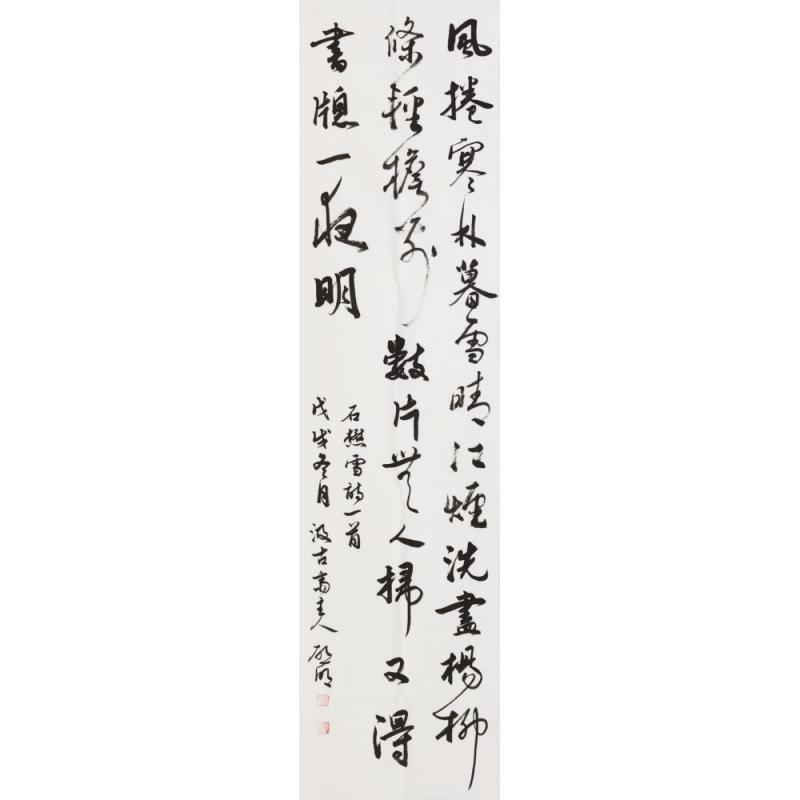 風捲寒林暮雪晴江煙洗盡楊柳
條輕檐前數片無人掃又得
書牕一夜明
石懋雪詩一首
戊戌冬月汲古齋主人